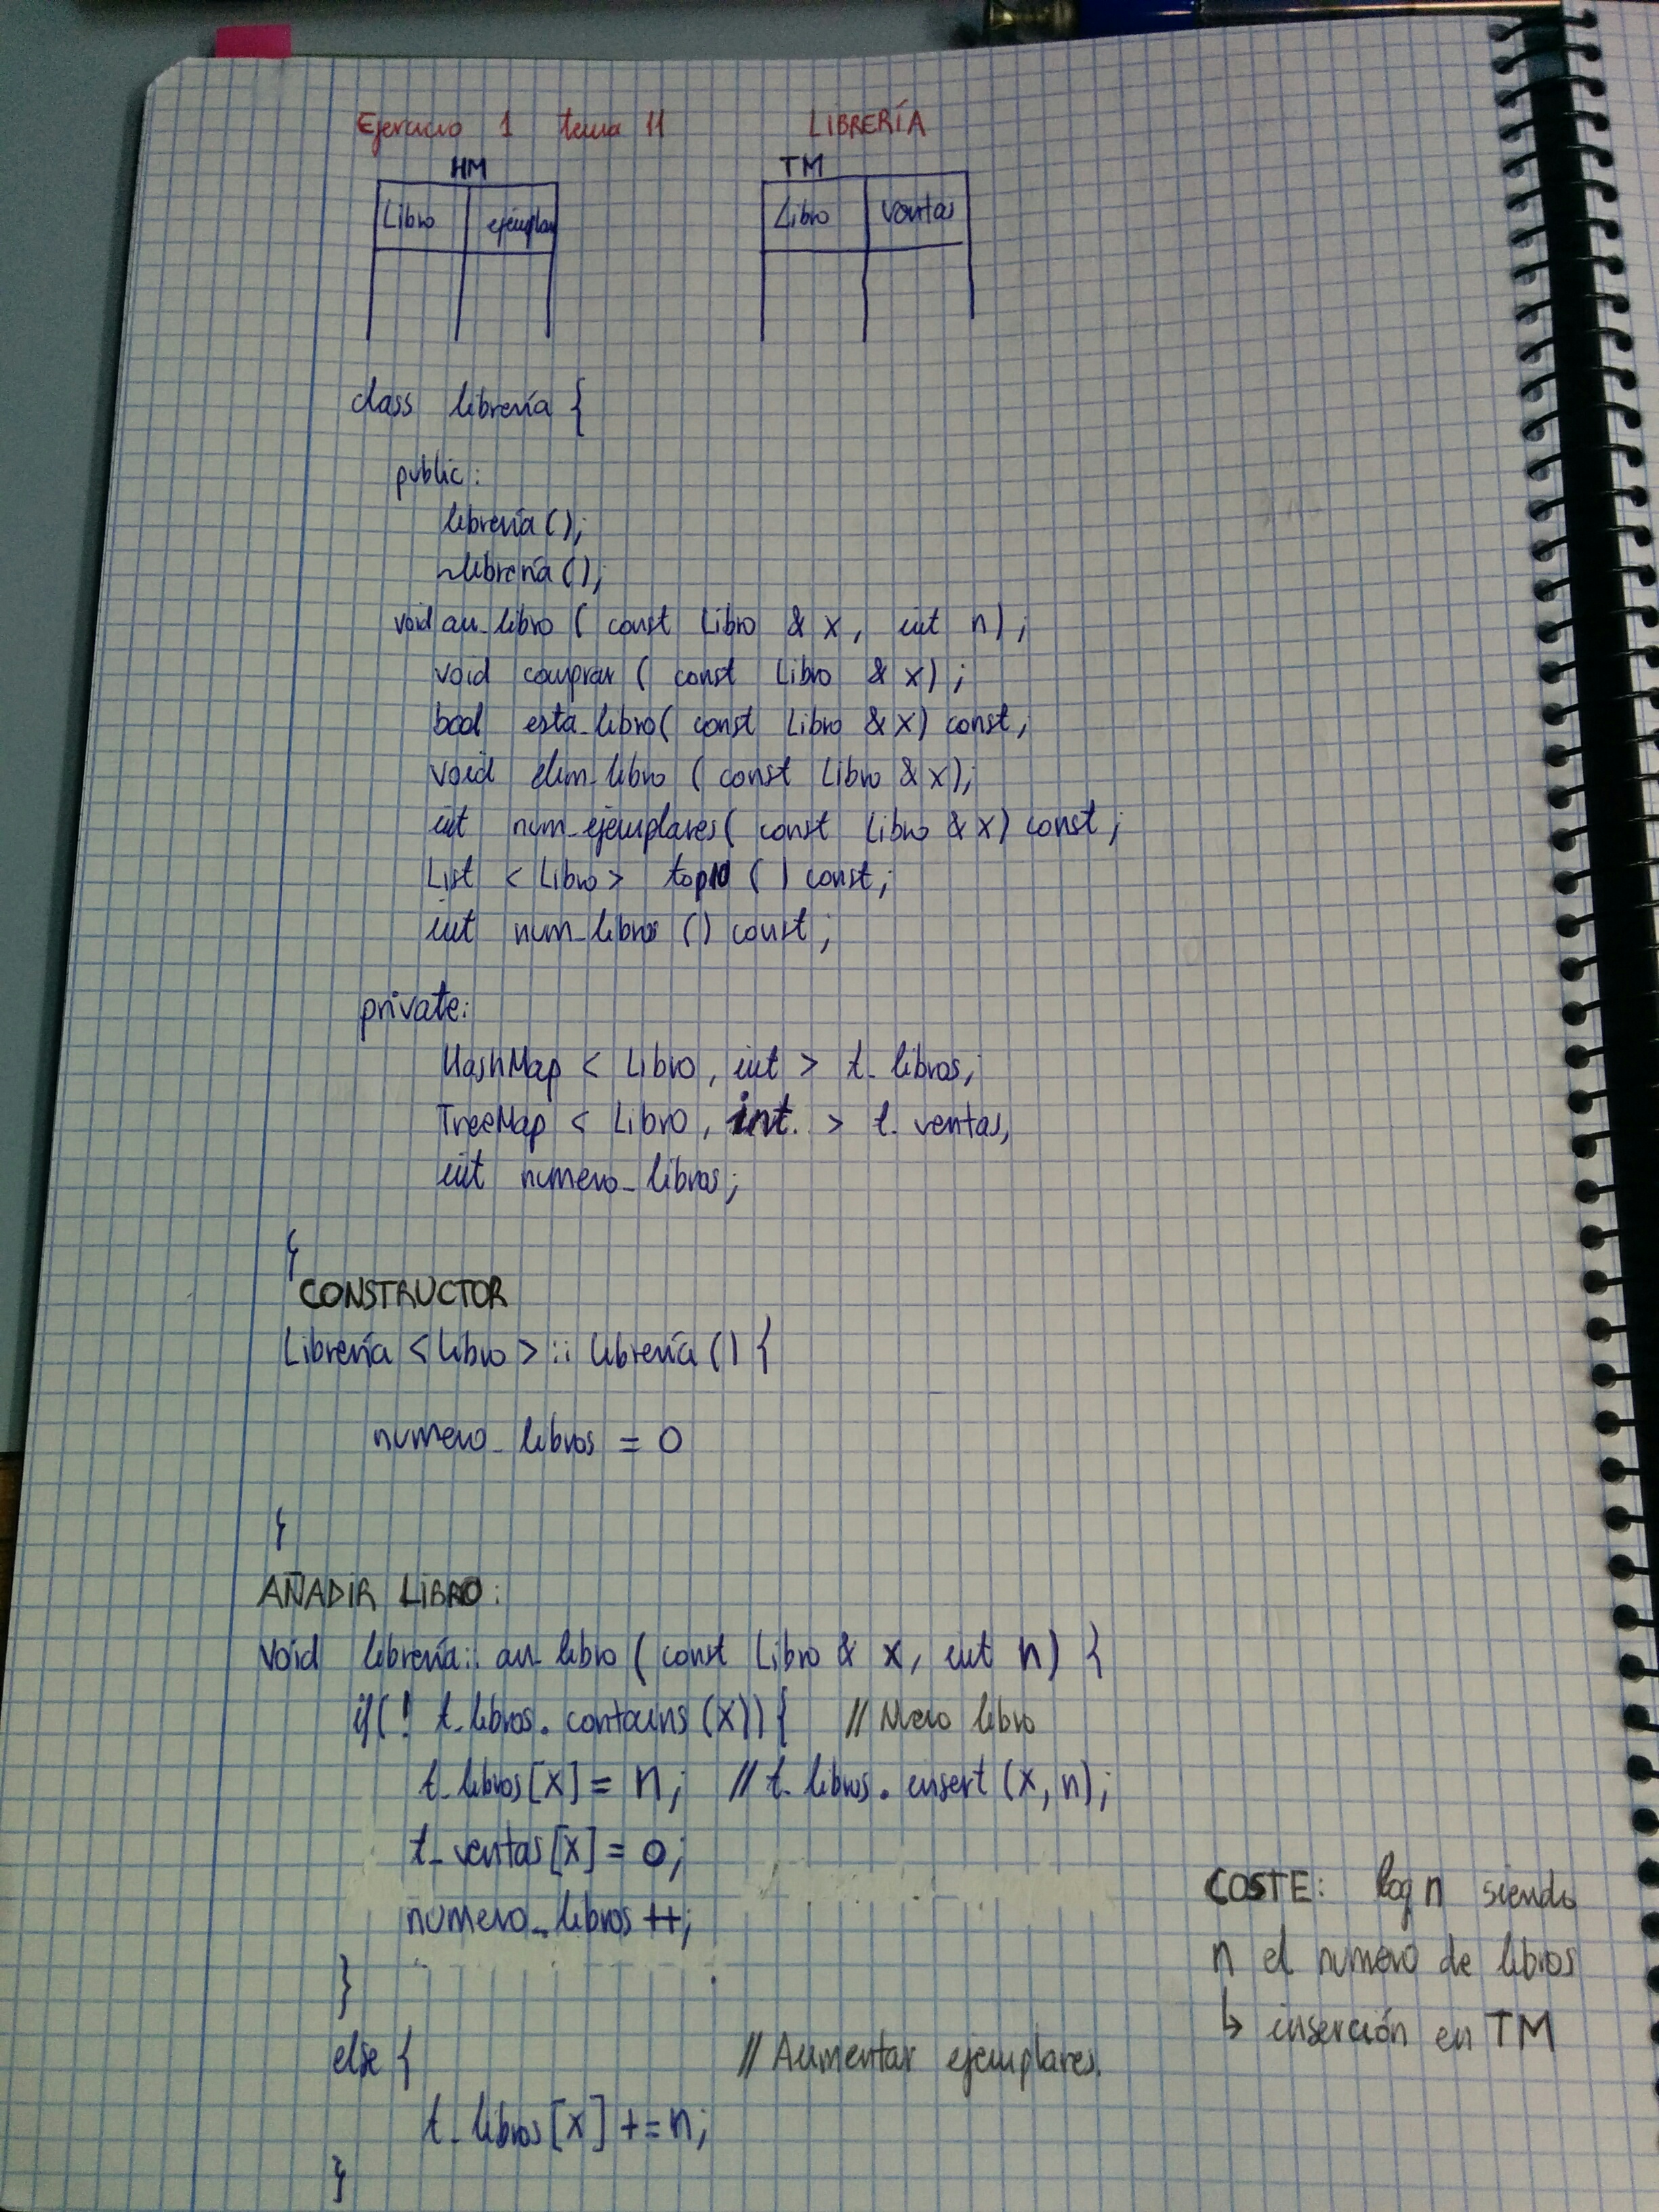 Ejercicio 1 tema 11 LIBRERÍA
HM TM
Libro ejemplar Libro ventas
class librería {
public:
librería ();
~librería ();
void an_libro ( const Libro & x, int n);
void comprar ( const Libro & x);
bool esta_libro( const Libro & x) const;
void elim_libro ( const Libro & x);
int num_ejemplares( const Libro & x) const;
List < Libro > top10 () const;
int num_libros () const;
private:
HashMap < Libro, int > t_libros;
TreeMap < Libro, int. > t_ventas;
int numero_libros;
}
CONSTRUCTOR
Librería <libro> :: librería () {
numero_libros = 0
}
AÑADIR LIBRO:
void librería:: an_libro ( const Libro & x, int n) {
if(! t_libros. contains (x)) { // Nuevo libro
t_libros[x] = n; // t_libros. insert (x, n);
t_ventas[x] = 0;
numero_libros ++;
}
else { // Aumentar ejemplares.
t_libros[x] += n;
}
COSTE: log n siendo
n el numero de libros
↳ inserción en TM